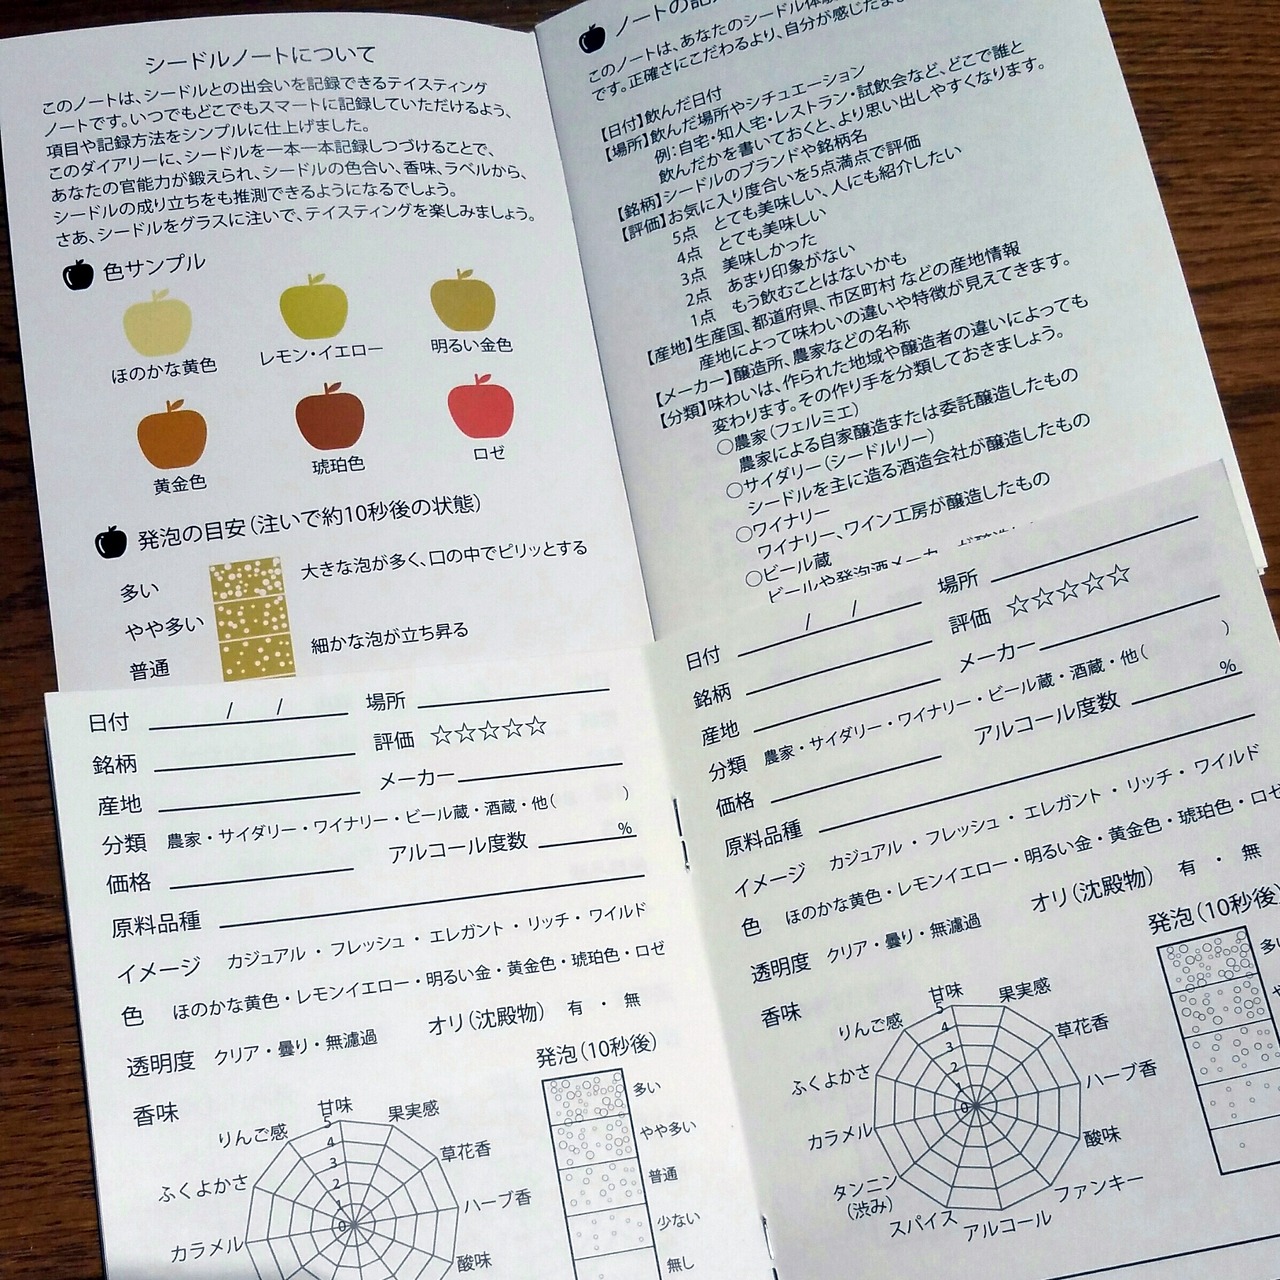 シードルノートについて
このノートは、シードルとの出会いを記録できるテイスティング
ノートです。いつでもどこでもスマートに記録していただけるよう、
項目や記録方法をシンプルに仕上げました。
このダイアリーに、シードルを一本一本記録しつづけることで、
あなたの官能力が鍛えられ、シードルの色合い、香味、ラベルから、
シードルの成り立ちをも推測できるようになるでしょう。
さあ、シードルをグラスに注いで、テイスティングを楽しみましょう。
色サンプル
ほのかな黄色
レモン・イエロー
明るい金色
黄金色
琥珀色
ロゼ
発泡の目安(注いで約10秒後の状態)
多い
大きな泡が多く、口の中でピリッとする
やや多い
普通
細かな泡が立ち昇る
ノートの記
このノートは、あなたのシードル体験
です。正確さにこだわるより、自分が感じたま
【日付】飲んだ日付
【場所】飲んだ場所やシチュエーション
例:自宅・知人宅・レストラン・試飲会など、どこで誰と
飲んだかを書いておくと、より思い出しやすくなります。
【銘柄】シードルのブランドや銘柄名
【評価】お気に入り度合いを5点満点で評価
5点 とても美味しい、人にも紹介したい
4点 とても美味しい
3点 美味しかった
2点 あまり印象がない
1点 もう飲むことはないかも
【産地】生産国、都道府県、市区町村 などの産地情報
産地によって味わいの違いや特徴が見えてきます。
【メーカー】醸造所、農家などの名称
【分類】味わいは、作られた地域や醸造者の違いによっても
変わります。その作り手を分類しておきましょう。
○農家(フェルミエ)
農家による自家醸造または委託醸造したもの
○サイダリー(シードルリー)
シードルを主に造る酒造会社が醸造したもの
○ワイナリー
ワイナリー、ワイン工房が醸造したもの
○ビール蔵
ビールや発泡酒メーカーが醸造し
日付 / / 場所
銘柄 評価 ☆☆☆☆☆
産地 メーカー
分類 農家・サイダリー・ワイナリー・ビール蔵・酒蔵・他( )
価格 アルコール度数 %
原料品種
イメージ カジュアル ・ フレッシュ ・ エレガント ・ リッチ ・ ワイルド
色 ほのかな黄色・レモンイエロー・明るい金・黄金色・琥珀色・ロゼ
透明度 クリア・曇り・無濾過 オリ(沈殿物) 有 ・ 無
香味
発泡(10秒後)
甘味
果実感
草花香
ハーブ香
酸味
りんご感
ふくよかさ
カラメル
5
4
3
2
1
0
多い
やや多い
普通
少ない
無し
日付 / / 場所
銘柄 評価 ☆☆☆☆☆
産地 メーカー
分類 農家・サイダリー・ワイナリー・ビール蔵・酒蔵・他( )
価格 アルコール度数 %
原料品種
イメージ カジュアル ・ フレッシュ ・ エレガント ・ リッチ ・ ワイルド
色 ほのかな黄色・レモンイエロー・明るい金・黄金色・琥珀色・ロゼ
透明度 クリア・曇り・無濾過 オリ(沈殿物) 有 ・ 無
香味
発泡(10秒後
甘味
果実感
草花香
ハーブ香
酸味
ファンキー
アルコール
スパイス
タンニン
(渋み)
カラメル
ふくよかさ
りんご感
5
4
3
2
1
0
多い